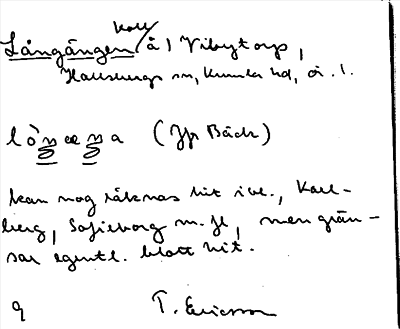 koll
Långängen å) Vibytorp,
Hallsbergs sn, Kumla hd, ö. l.
lòŋæŋa (Jfr Bäck)
kan nog räknas hit ibl., Karl-
berg, Sofieborg m. fl, men grän-
sar egentl. blott hit.
9 T. Ericsson